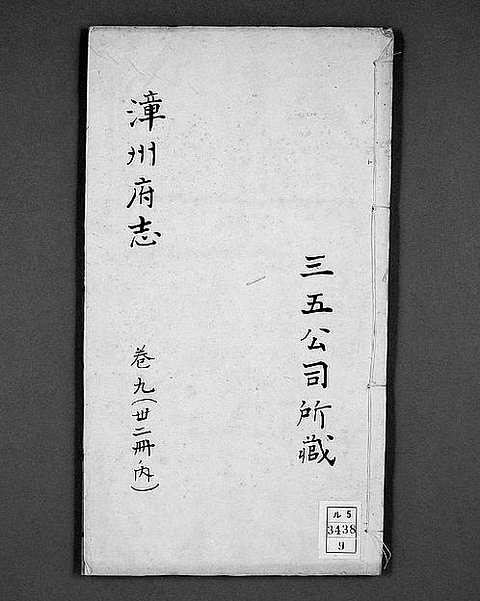 三五公司所藏
漳州府志
巻九(廿二冊ノ内)
ル5
3438
9